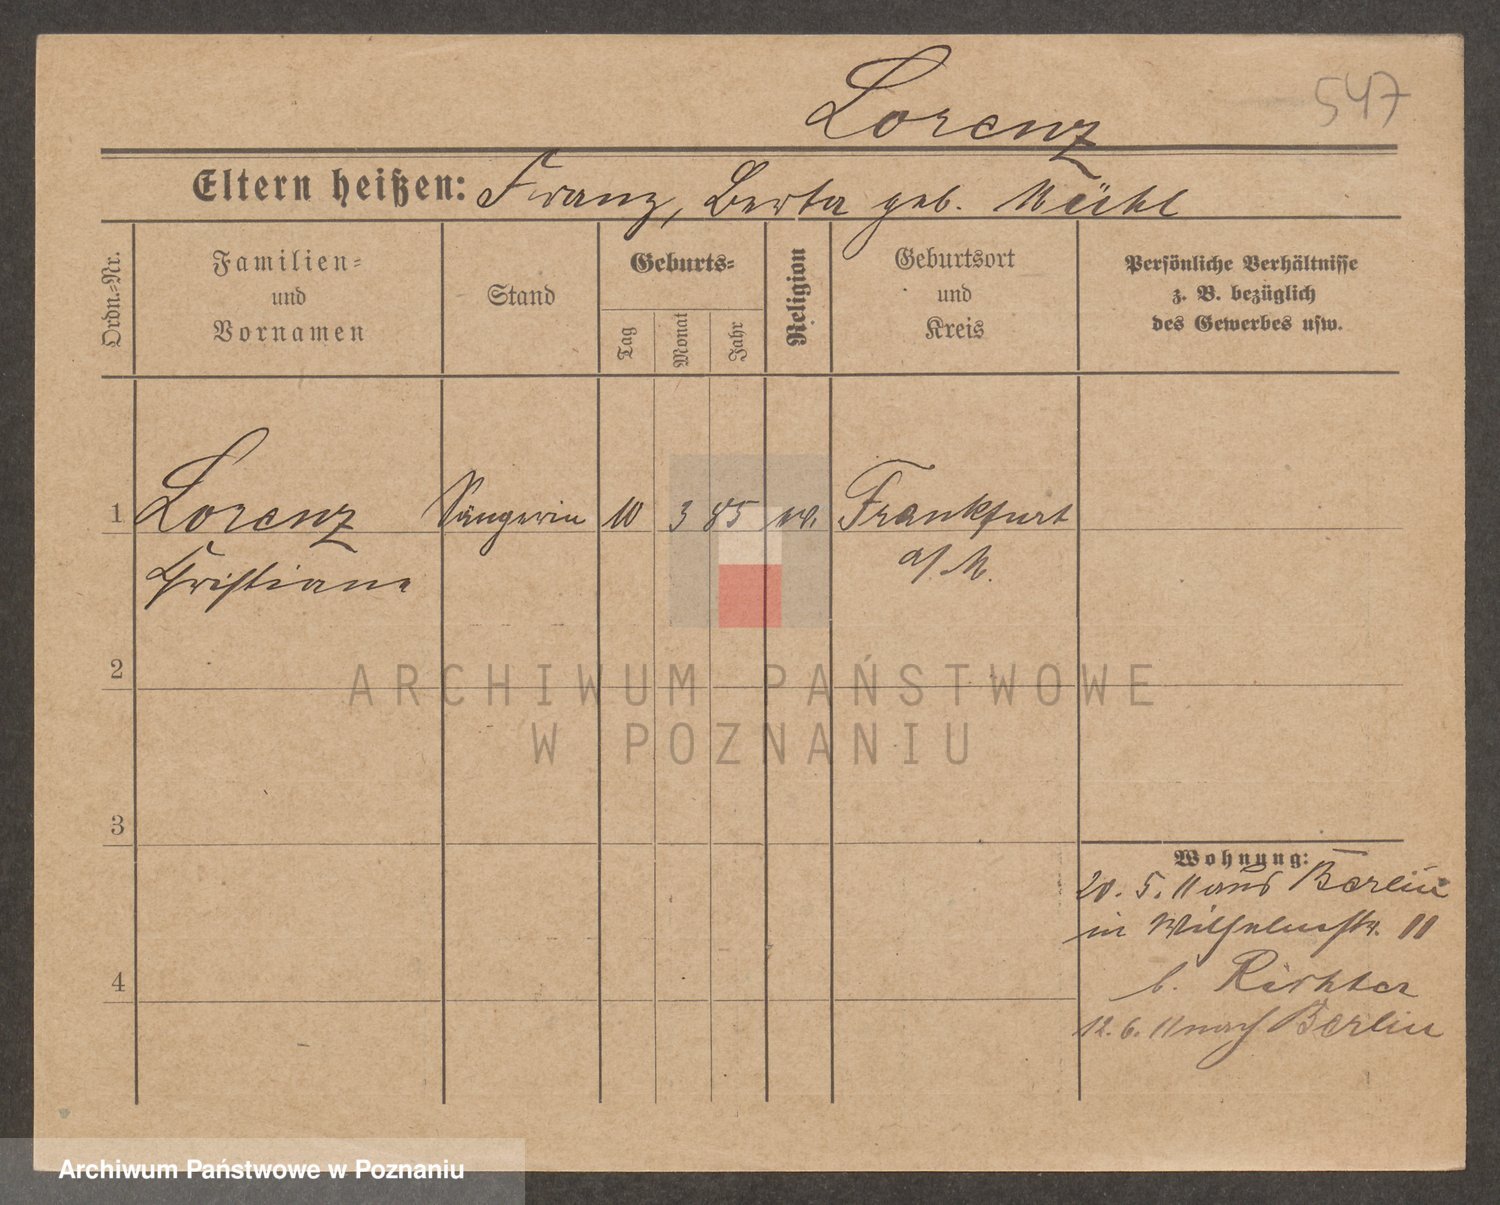 547
Lorenz
Eltern heißen: Franz, Berta geb. Mühl
Ordn.-Nr.
Familien-
und
Vornamen
Stand
Geburts-
Tag
Monat
Jahr
Religion
Geburtsort
und
Kreis
Persönliche Verhältnisse
z. B. bezüglich
des Gewerbes usw.
1 Lorenz Sängerin 10 3 85 ev. Frankfurt
Christiane a/M.
2
ARCHIWUM PAŃSTWOWE
W POZNANIU
3
Wohnung:
20. 5. 11 aus Berlin
in Wilhelmstr. 11
b. Richter
4
12. 6. 11 nach Berlin
Archiwum Państwowe w Poznaniu